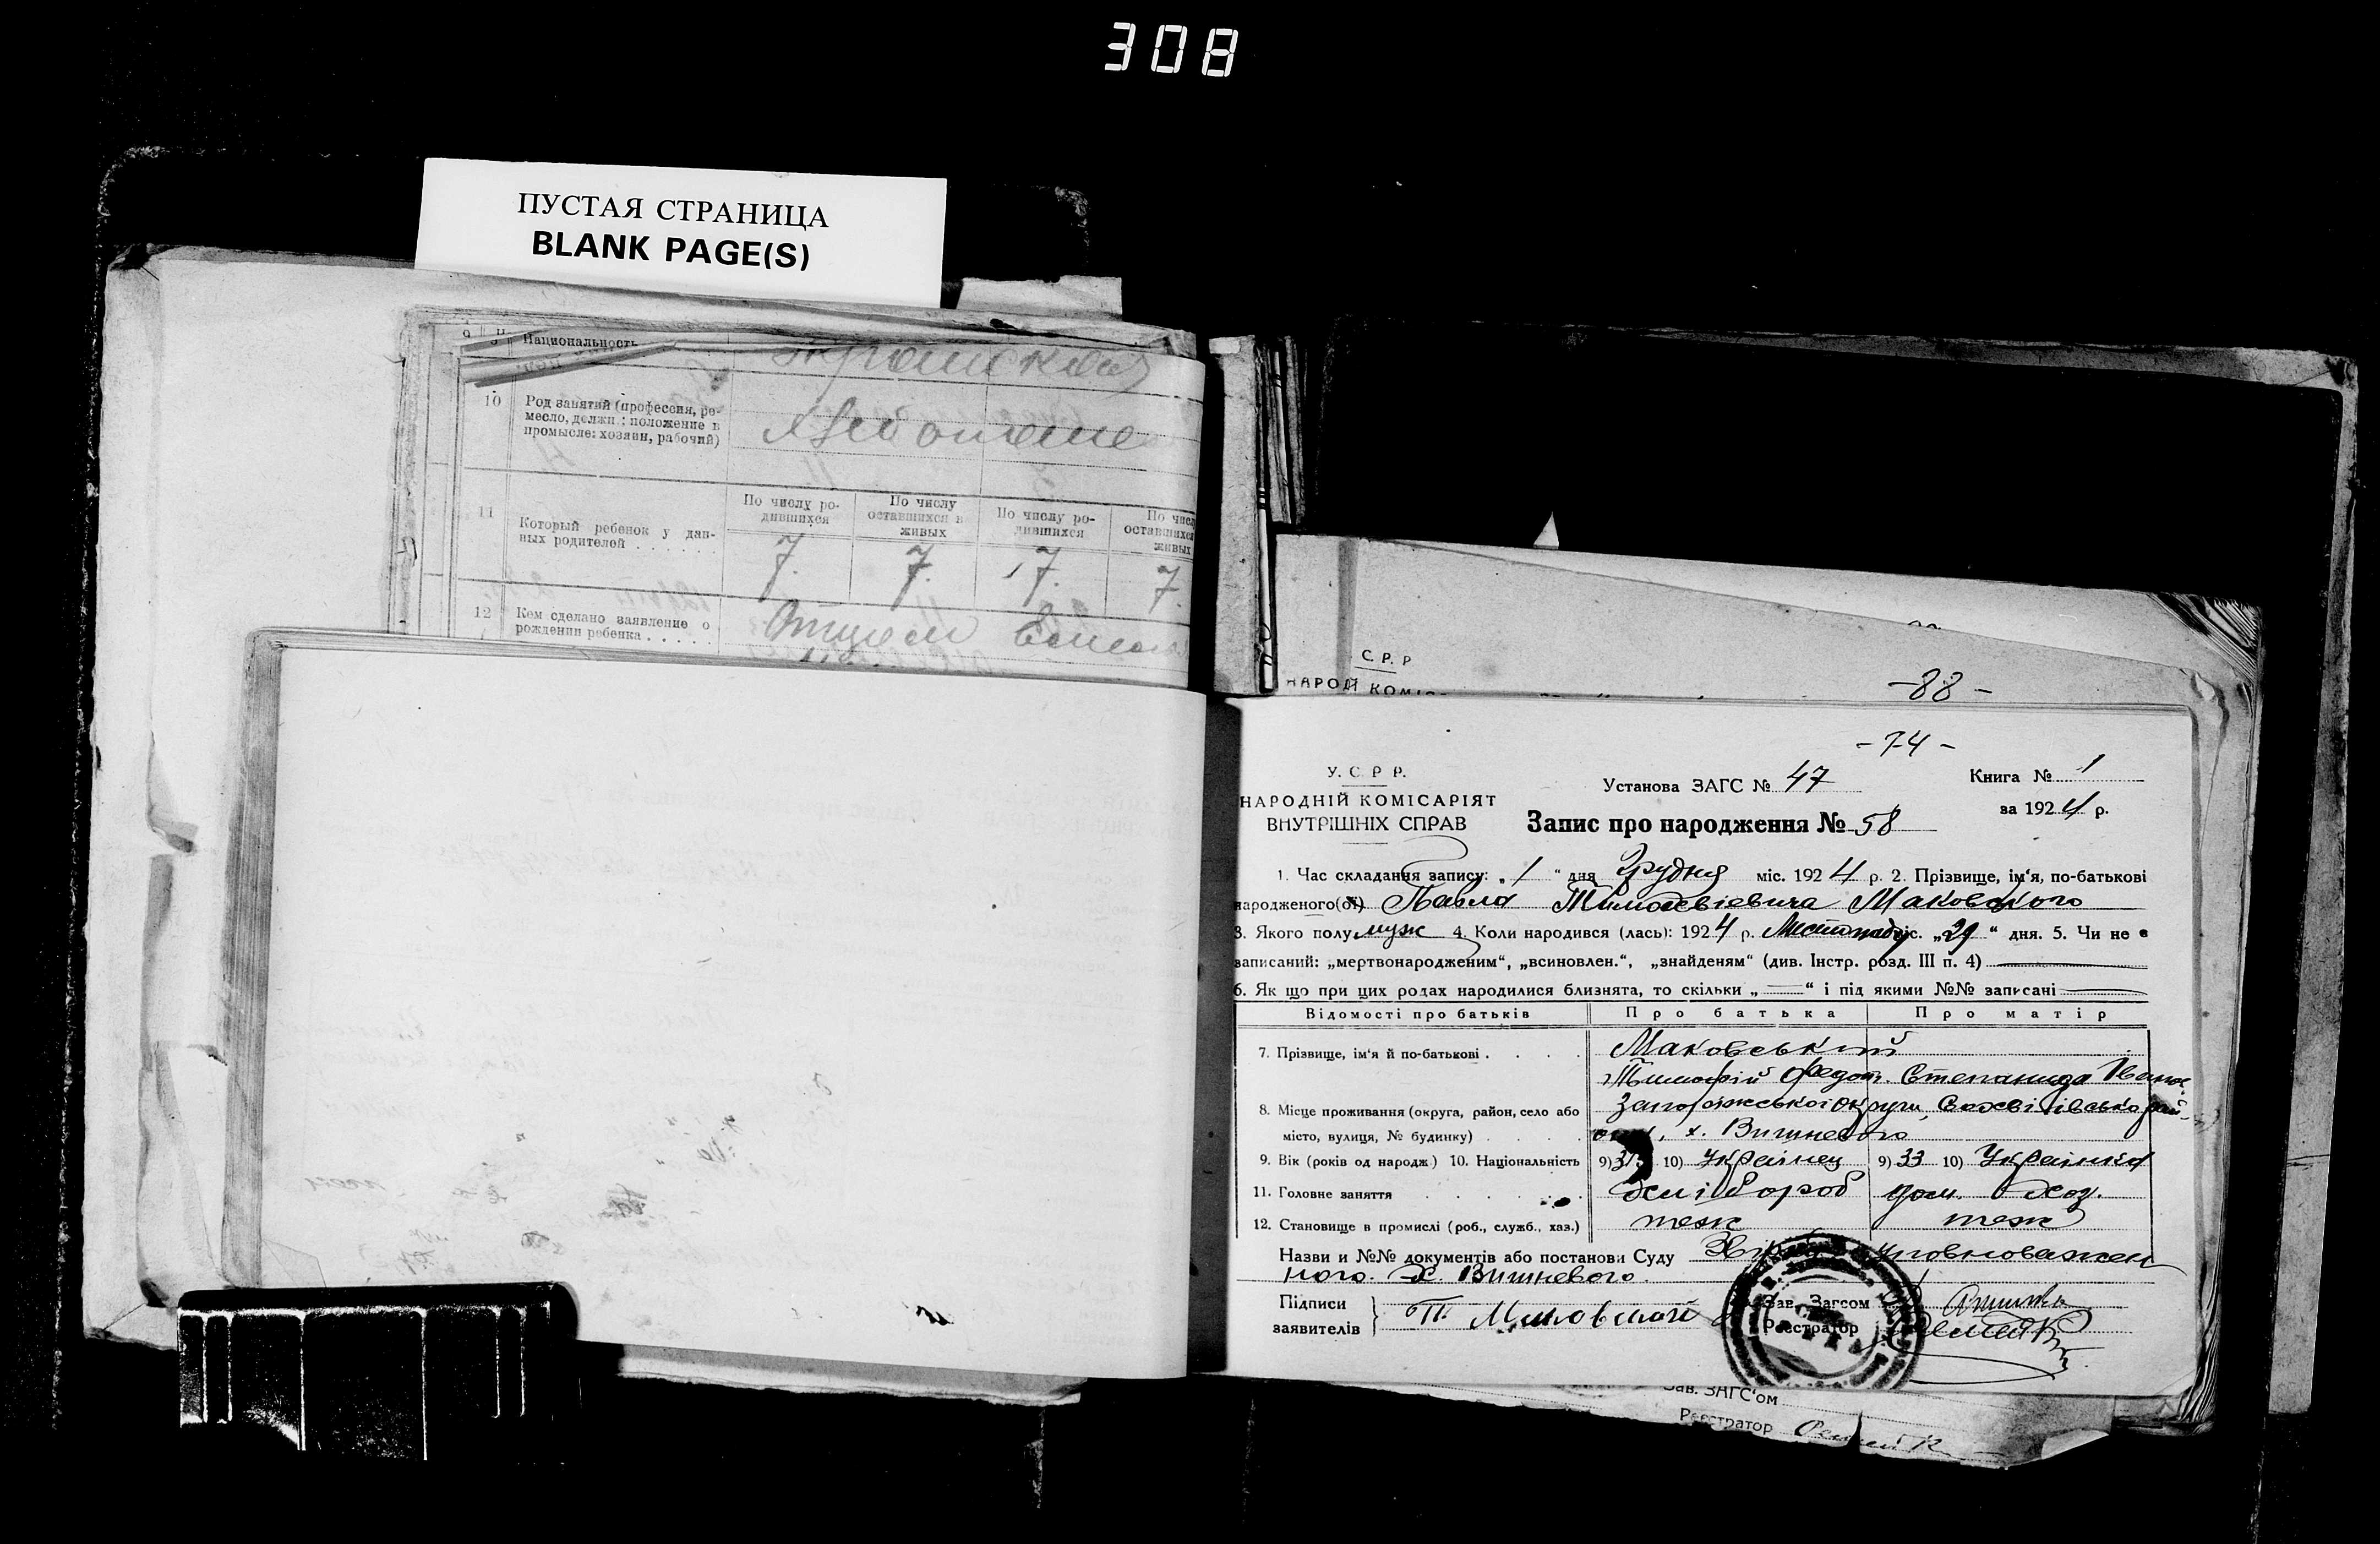 308
ПУСТАЯ СТРАНИЦА
BLANK PAGE(S)
9 Национальность
10 Род занятий (профессия, ре-
месло, должн.: положение в
промысле: хозяин, рабочий)
11 Который ребенок у дан-
ных родителей . . . . . .
По числу ро-
дившихся
По числу
оставшихся в
живых
По числу ро-
дившихся
По числ
оставшихся
живых
7. 7. 7. 7.
12 Кем сделано заявление о
рождении ребенка . . . . .
Отцем
С. Р. Р
НАРОД КОМІС
-88-
-74-
У. С. Р. Р.
НАРОДНІЙ КОМІСАРІЯТ
ВНУТРІШНІХ СПРАВ
Установа ЗАГС № 47
Книга № 1
за 1924 р.
Запис про народження № 58
1. Час складання запису: „1“ дня Грудня міс. 1924 р. 2. Прізвище, ім‘я, по-батькові
народженого(ої) Павла Тимофієвича Маковского
3. Якого полу муж 4. Коли народився (лась): 1924 р. Листопаду міс. „29“ дня. 5. Чи не є
записаний: „мертвонародженим“, „всиновлен.“, „знайденям“ (див. Інстр. розд. III п. 4)
6. Як що при цих родах народилися близнята, то скільки „—“ і під якими №№ записані
Відомості про батьків Про батька Про матір
7. Прізвище, ім‘я й по-батькові . . . . Маковський
Тимофій Федот. Степанида Іванов.
8. Місце проживання (округа, район, село або Запорожської округи,
місто, вулиця, № будинку) . . . . х. Вишневого
9. Вік (років од народж) 10. Національність 9) 10) Українец 9) 33 10) Українка
11. Головне заняття . . . . . . Хлібороб дом. хоз.
12. Становище в промислі (роб., служб., хаз.) теж теж
Назви и №№ документів або постанови Суду Уповноважен
ного х. Вишневого.
Підписи
заявителів } Т. Маковский
Зав. Загсом
Реєстратор
Зав. ЗАГС‘ом
Реєстратор